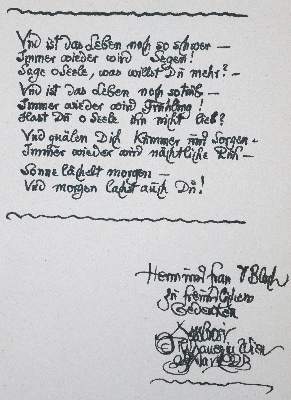 Und ist das Leben noch so schwer –
Immer wieder wird Segen!
Sage o Seele, was willst Du mehr? –
Und ist das Leben noch so trüb –
Immer wieder wird Frühling!
Hast Du o Seele ihn nicht lieb?
Und quälen Dich Kummer und Sorgen –
Immer wieder wird nächtliche Ruh –
Sonne lächelt morgen –
Und morgen lachst auch Du!
Herrn und Frau Bloch
zu freundlichem
Gedenken
Wien